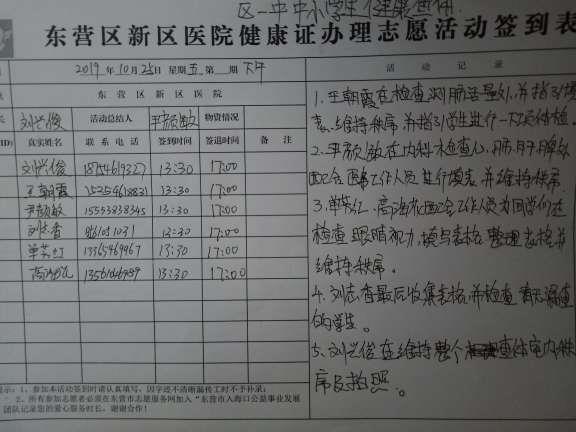 区一中中小学生健康查体
东营区新区医院健康证办理志愿活动签到表
2019年10月25日 星期五 第 期 下午
东营区新区医院
刘兴俊 活动总结人 尹颜敏 物资情况
真实姓名 联系电话 签到时间 签退时间 备注
刘兴俊 18754619327 13:30 17:00
王朝霞 15254618831 13:30 17:00
尹颜敏 15553838345 13:30 17:00
刘志杳 13:30 17:00
单芙红 13365469967 13:30 17:00
13:30 17:00
提示：1、参加本活动签到时请认真填写，因字迹不清晰漏传工时不予补录；
2、所有参加志愿者必须在东营市志愿服务网加入“东营市入海口公益事业发展
团队记录您的爱心服务时长，谢谢合作！
活动记录
1. 王朝霞在检查测肺活量处，并指引填
表、维持秩序，并指引学生进行一对一体检。
2. 尹颜敏在内科检查心、肺、肝、脾处
配合医工作人员进行填表并维持秩序
3、单芙红、高海花配合工作人员为同学们在
检查眼睛视力，填写表格整理表格并
维持秩序。
4. 刘志杳最后收集表格，并检查有无漏查
的学生。
5、刘兴俊在维持整个查体室内秩
序及拍照。